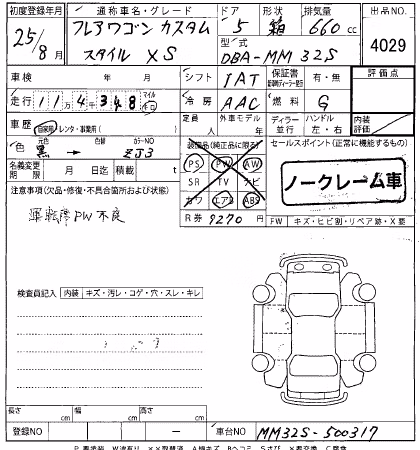 初度登録年月 通称車名・グレード ドア 形状 排気量 出品NO
25/8月 フレアワゴン カスタム スタイル XS 5 箱 660cc 4029
型式 DBA-MM32S
車検 年 月 シフト IAT 保証書 有・無 評価点
走行 11万4千348 マイル キロ 冷房 AAC 燃料 G
車歴 自家用・レンタ・事業用( ) 定員 人 外車モデル 年 ディーラー 並行 ハンドル 左・右 内装評価
色 元色 黒 → 色替 カラーNO ZJ3 装備品(純正品に限る) セールスポイント(正常に機能するもの)
名義変更期限 月 日迄 積載 t PS PW AW
注意事項(欠品・修復・不具合箇所および状態) SR TV ナビ ノークレーム車
運転席PW不良 カワ エアB ABS
R券 9270円 FW キズ・ヒビ割・リペア跡・X要
検査員記入 内装 キズ・汚レ・コゲ・穴・スレ・キレ
長さ cm 幅 cm 高さ cm
登録NO — 車台NO MM32S-500317